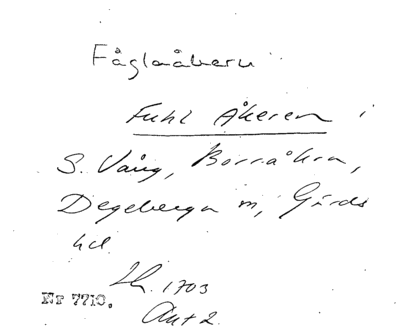 Fåglaåkern
Fuhl Åkeren i
S. Vång, Borråkra,
Degeberga m, Gärds
hd.
Lh. 1703
Nr 7710.
Ant 2.